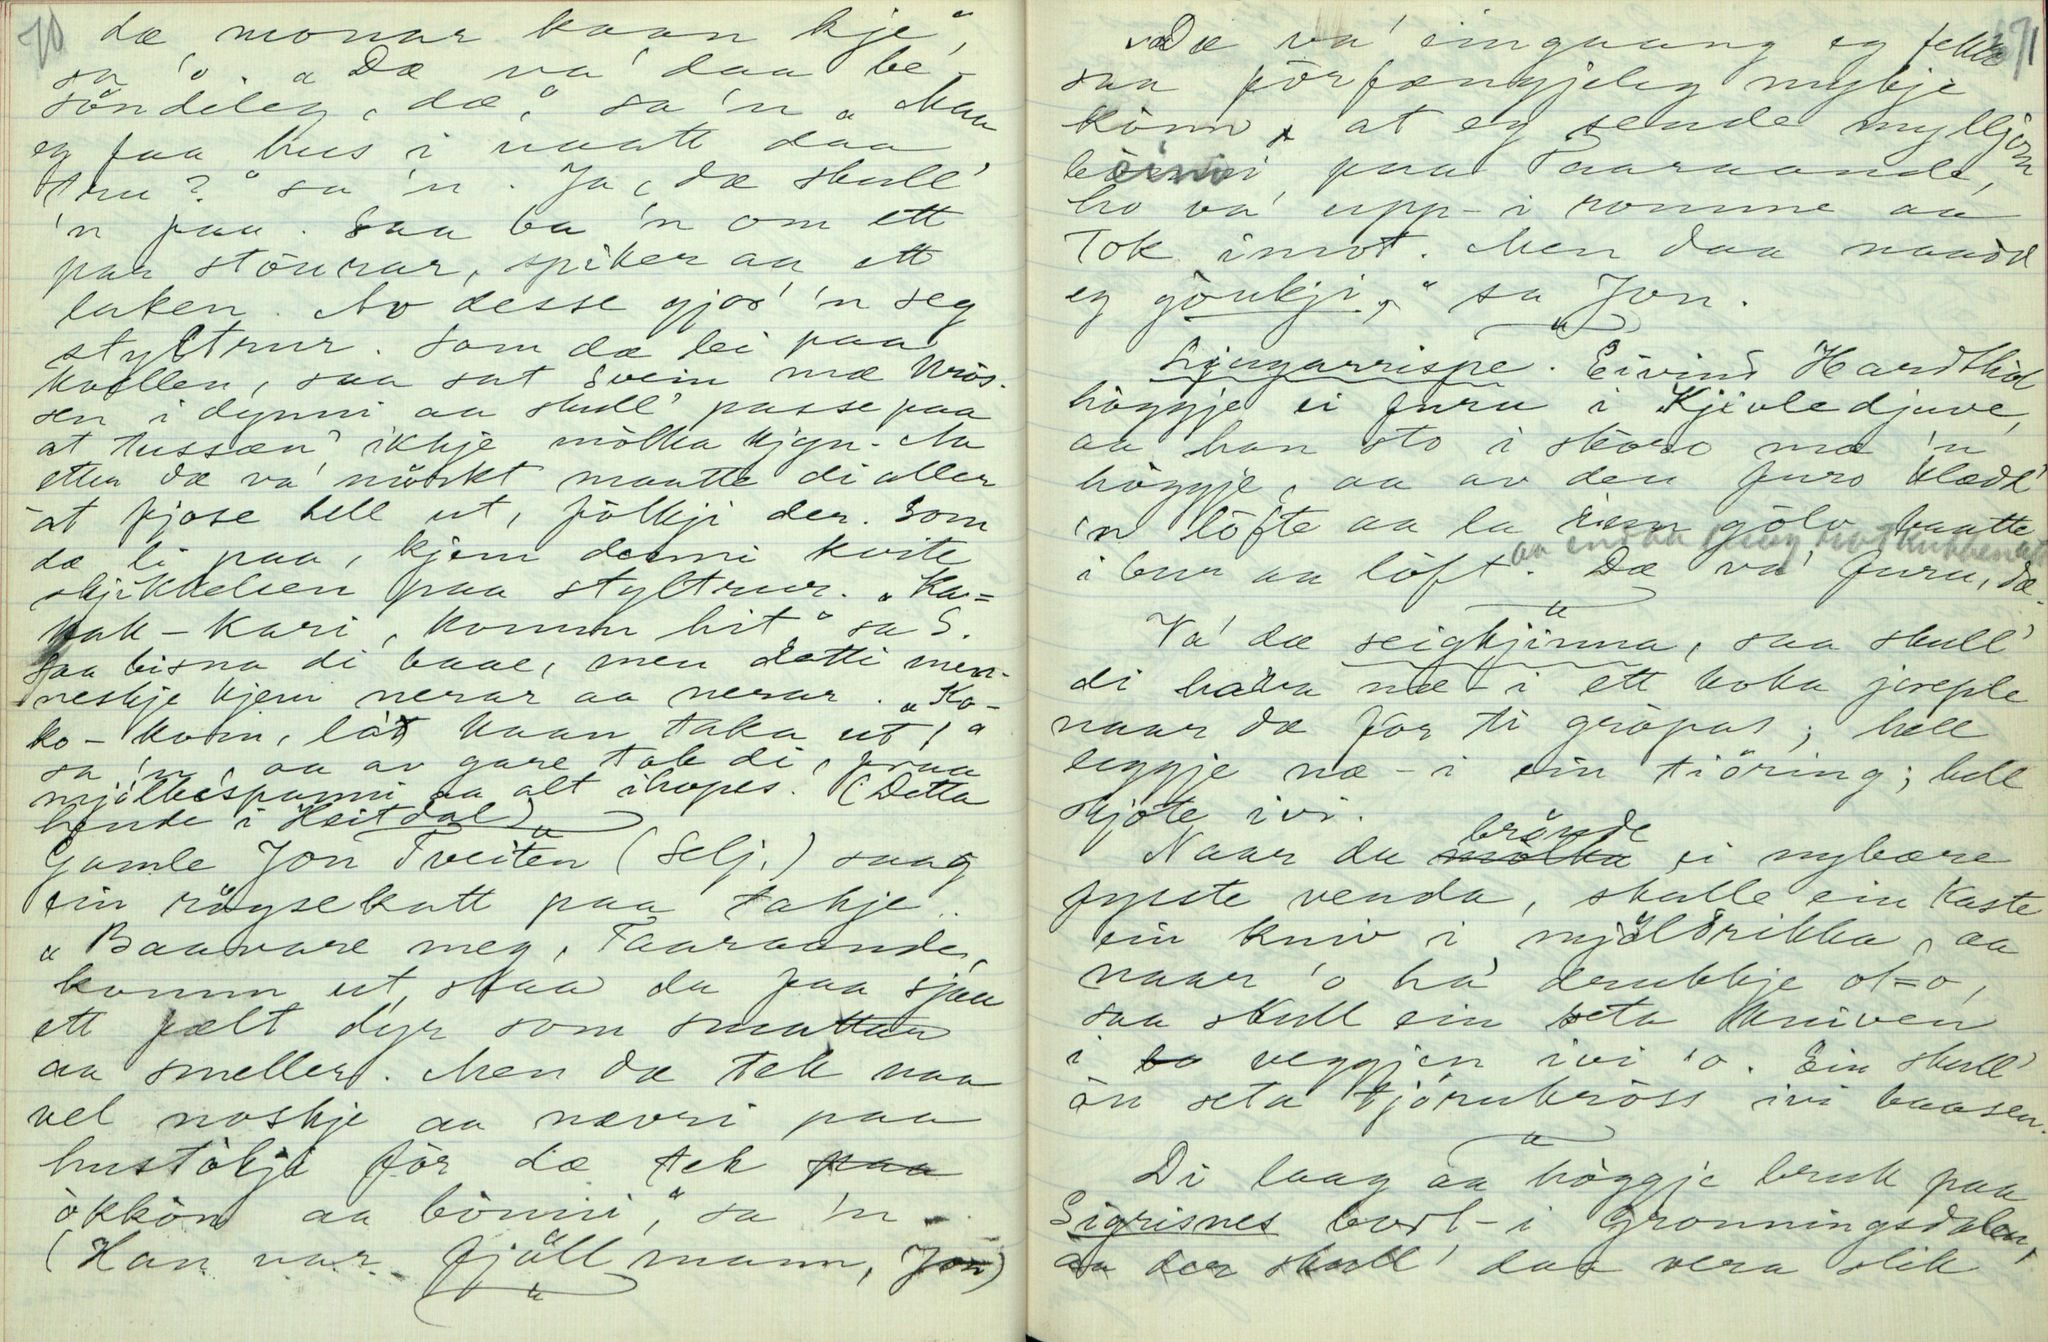 70
dæ monar kaan kje",
sa 'o. "Dæ va' daa be-
söndeleg, dæ," sa 'n. "Maa
eg faa hus i naatt daa
tru?" sa 'n. Ja, dæ skull'
'n faa. Saa ba 'n om ett
par stöurar, spiker aa ett
laken. Av desse gjor' 'n seg
styltrur. Som dæ lei paa
kvellen, saa sat Svein mæ krös-
sen i dynni aa skull' passe paa
at tussan' ikkje mölka kjyn. Aa
etter dæ va' mörkt maatte di aller
at fjose hell ut, fölkji der. Som
dæ li paa, kjem denni kvite
skjikkelsen paa styltrur. "Ka-
kak-Kari, komm hit" sa S.
Saa bisna di baae, men dætti men-
neskje kjem nerar aa nerar. "Ko-
ko-koin, låt kaan taka ut!"
sa 'n, aa av gare tok di, fraa
mjölkespanni aa alt ihopes. (Detta
hende i Heitdal)
Gamle Jon Tveiten (Selj.) saag
ein röysekatt paa takje.
"Baavare meg, Taaraande,
komm ut, skaa du faa sjaa
ett fælt dyr som smattar
aa smeller. Men dæ tek naa
vel noskje aa nævri paa
hustökji för dæ tek
ökkön aa bönni," sa 'n.
(Han var fjöllmann, Jon)
71
"Dæ va' eingaang eg fekk
saaförfængjeleg mykje
könn, at eg sende mylljon
paa Taaraande,
ho va' upp-i romme aa
tok imot. Men daa naadd
eg göukji," sa Jon.
Ljugarrispe. Eivind Hardthid
höggje ei furu i Kjivledjuve,
aa han sto i skoro mæ 'n
höggje, aa av den furo klædd'
'n löfte aa la inn gölv baatte
i bur aa löft. Dæ va' furu, dæ.
Va' dæ seigkjinna, saa skull'
di hava næ-i ett koka jeeple
naar dæ for ti gröpas; hell
leggje næ-i ein tiöring; hell
skjote ivi.
Naar du brönde ei nybære
fyste venda, skulle ein kaste
ein kniv i mjöldrikka, aa
naar 'o ha' drukkje ot-o,
saa skull ein seta kniven
i veggjen ivi 'o. Ein skull'
ön seta tjörukröss ivi baasen.
Di laag aa höggje bruk paa
Sigrisnes burt-i Gronningsdalen,
aa der skull' daa vera slik